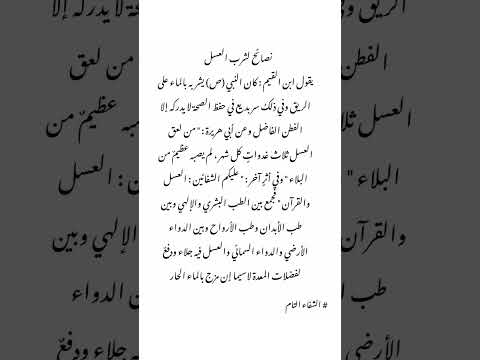 نصائح لشرب العسل
يقول ابن القيم : كان النبي (ص) يشربه بالماء على
الريق وفي ذلك سر بديع في حفظ الصحة لا يدركه إلا
الفطن الفاضل وعن أبي هريرة : " من لعق
العسل ثلاث غدواتٍ كل شهر ، لم يصبه عظيمٌ من
البلاء " وفي أثرٍ آخر : " عليكم الشفائين : العسل
والقرآن " فجمع بين الطب البشري والإلهي وبين
طب الأبدان وطب الأرواح وبين الدواء
الأرضي والدواء السمائي والعسل فيه جلاء ودفعٌ
لفضلات المعدة لاسيما إن مزج بالماء الحار
# الشفاء التام